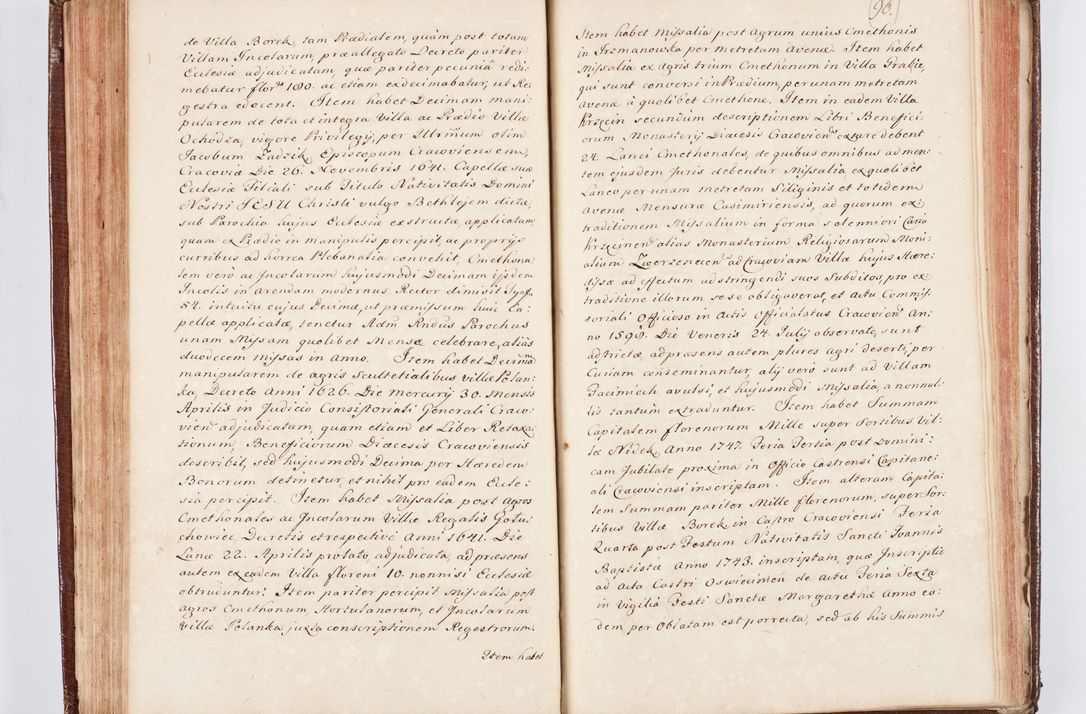 de Villa Borek, tam Prædialem, quàm post totam
Villam Incolarum, præallegato Decreto pariter
Eclesiæ adjudicatam, quæ pariter pecuniâ redi-
mebatur flor: 100. ac etiam exdecimabatur, ut Re-
gestra edocent. Item habet Decimam mani-
pularem de tota et integra Villa ac Prædio Villæ
Ochodza, vigore Privilegij, per Illrmum olim
Jacobum Zadzik Episcopum Cracoviensem,
Cracoviæ Die 26. Novembris 1641. Capellæ suæ
Eclesiæ Filiali sub Titulo Nativitatis Domini
Nostri JESU Christi vulgo Bethlejem dictæ,
sub Parochia hujus Eclesiæ exstructæ, applicatam
quam ex Prædio in manipulis percipit, ac proprijs
curribus ad horrea Plebanalia convehit, Cmethona-
lem verò ac Incolarum hujusmodi Decimam ijsdem
Incolis in arendam modernus Rector dimisit
54. intuitu cujus Decimæ, ut præmissum huic Ca-
pellæ applicatæ, tenetur Adm Rndus Parochus
unam Missam quolibet Mense celebrare, alias
duodecem missas in anno. Item habet Decimam
manipularem de agris Scultetialibus villæ Polan-
ka, Decreto Anni 1626. Die Mercurij 30. Mensis
Aprilis in Judicio Consistoriali Generali Craco-
vien adjudicatam, quam etiam et Liber Retaxa-
tionum, Beneficiorum Diæcesis Cracoviensis
describit, sed hujusmodi Decima per Hæredem
Bonorum detinetur, et nihil pro eadem Ecle-
sia percipit. Item habet Missalia post agros
Cmethonales ac Incolarum Villæ Regalis Golu-
chowiec Decretis et respectivè Anni 1641. Die
Lunæ 22. Aprilis prolato adjudicata, ad præsens
autem ex eadem Villa floreni 10. nonnisi Eclesiæ
obtruduntur: Item pariter percipit Missalia post
agros Cmethonum Hortulanorum, et Incolarum
Villæ Polanka juxta conscriptionem Regestrorum.
Item habet
96.
Item habet Missalia post Agrum unius Cmethonis
in Irzmanowska per Metretam Avenæ. Item habet
Missalia ex Agris trium Cmethonum in Villa Grabie,
qui sunt conversi in Prædium, per unam metretam
avenæ à quolibet Cmethone. Item in eadem Villa
Krzęcin secundum descriptionem Libri Benefici-
orum Monasterij Diæcesis Cracovien extare debent
24. Lanei Cmethonales, de quibus omnibus ad mon-
tem ejusdem Juris debentur Missalia ex quolibet
Laneo per unam metretam Siliginis et totidem
avenæ Mensuræ Casimiriensis, ad quorum ex-
traditionem Missalium in forma solenniori Curia
Krzęcinen alias Monasterium Religiosarum Moni-
alium Zwerzenecen ad Cracoviam Villæ hujus Hære-
dissæ ad effectum adstringendi suos Subditos, pro ex-
traditione illorum sese obligaverat, et actu Commis-
soriali Officioso in Actis Officialatus Cracovien An-
no 1598. Die Veneris 24. Julij observato, sunt
adstrictæ, ad præsens autem plures agri deserti, per
Curiam conseminantur, alij verò sunt ad Villam
Facimiech avulsi, et hujusmodi Missalia, a nonnul-
lis tantum extraduntur. Item habet Summam
Capitalem florenorum Mille super Sortibus Vil-
læ Nidek, Anno 1747. Feria Tertia post Domini-
cam Jubilate proxima in Officio Castrensi Capitane-
ali Cracoviensi inscriptam. Item alteram Capita-
lem Summam pariter Mille florenorum, super Sor-
tibus Villæ Borek in Castro Cracoviensi Feria
Quarta post Festum Nativitatis Sancti Joannis
Baptistæ Anno 1743. inscriptam, quæ Inscriptio
ad acta Castri Oswiecimen de actu Feria Sexta
in Vigilia Festi Sanctæ Margarethæ Anno eo-
dem per Oblatam est porrecta, sed ab his Summis